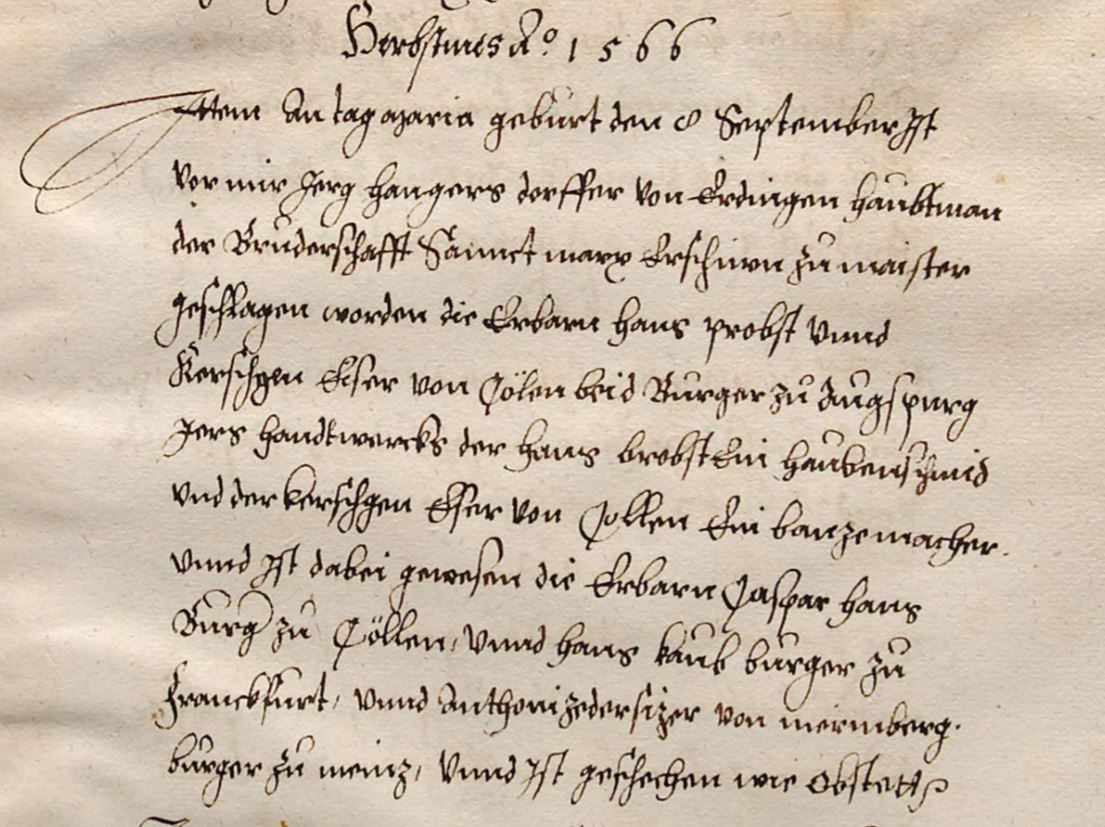 Herbstmes Aº 1566
Ittem An tag azaria geburt den 8 September Ist
vor mir Jerg hangers dorffer von Erdingen haubtman
der Bruderschafft Sannct marx Erschinn zu maister
geschlagen worden die Erbarn hans probst vnnd
Kerschgen Eser von Cölen beid Burger zu Augspurg
Jers handtwercks der hans brobst Ein haubenschmid
vnd der kerschgen Eser von Collen Ein banzemacher.
vnnd Ist dabei gewesen die Erbarn Caspar hans
Burg zu Cöllen, vnnd hans kaub burger zu
Franckfurt, vnnd Anthoni zedersizer von nürmberg.
burger zu meinz, vnnd Ist geschechen wie obstett